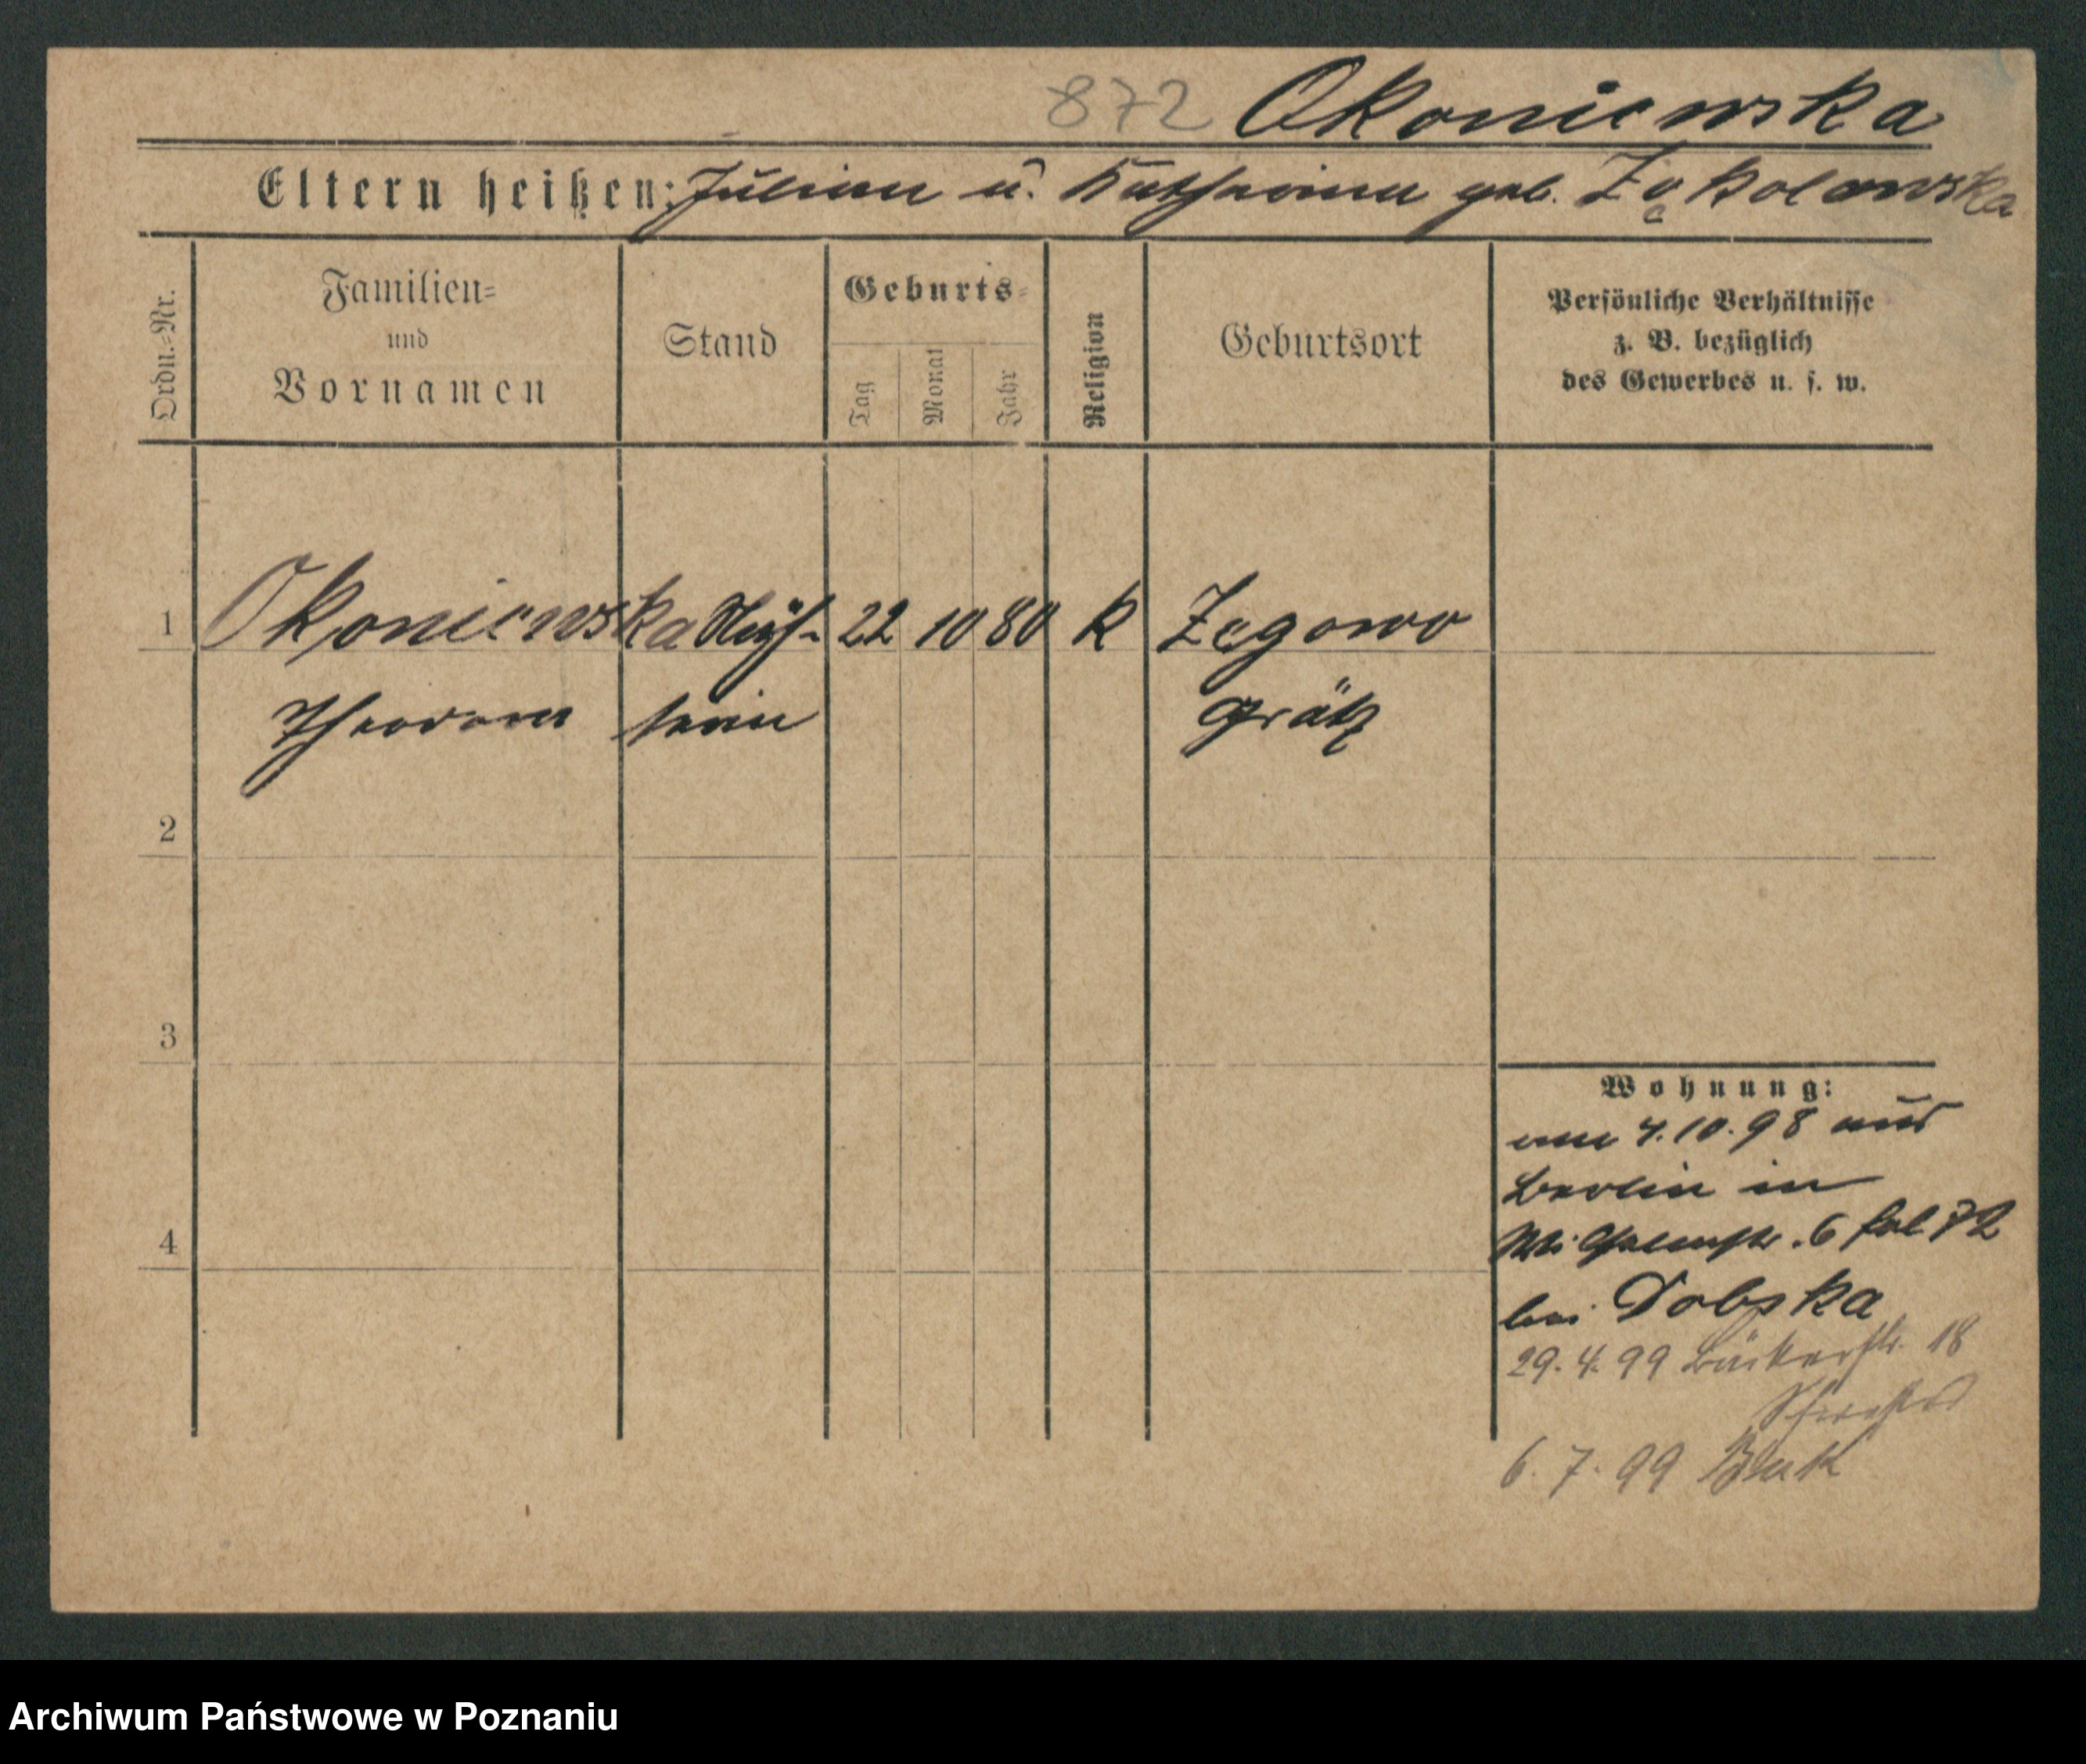 872 Okoniewska
Eltern heißen: Julian u. Katharina geb.
Ordn.=Nr.
Familien=
und
Vornamen
Stand
Geburts=
Tag
Monat
Jahr
Religion
Geburtsort
Persönliche Verhältnisse
z. B. bezüglich
des Gewerbes u. s. w.
1 Okoniewska Näh= 22 10 80 K Zegowo
Theodora terin Grätz
2
3
4
Wohnung:
am 4.10.98 aus
Berlin in
Wilhelmstr. 6 bei
bei Dobska
29.4.99 Bäckerstr. 18
6.7.99 Buk
Archiwum Państwowe w Poznaniu